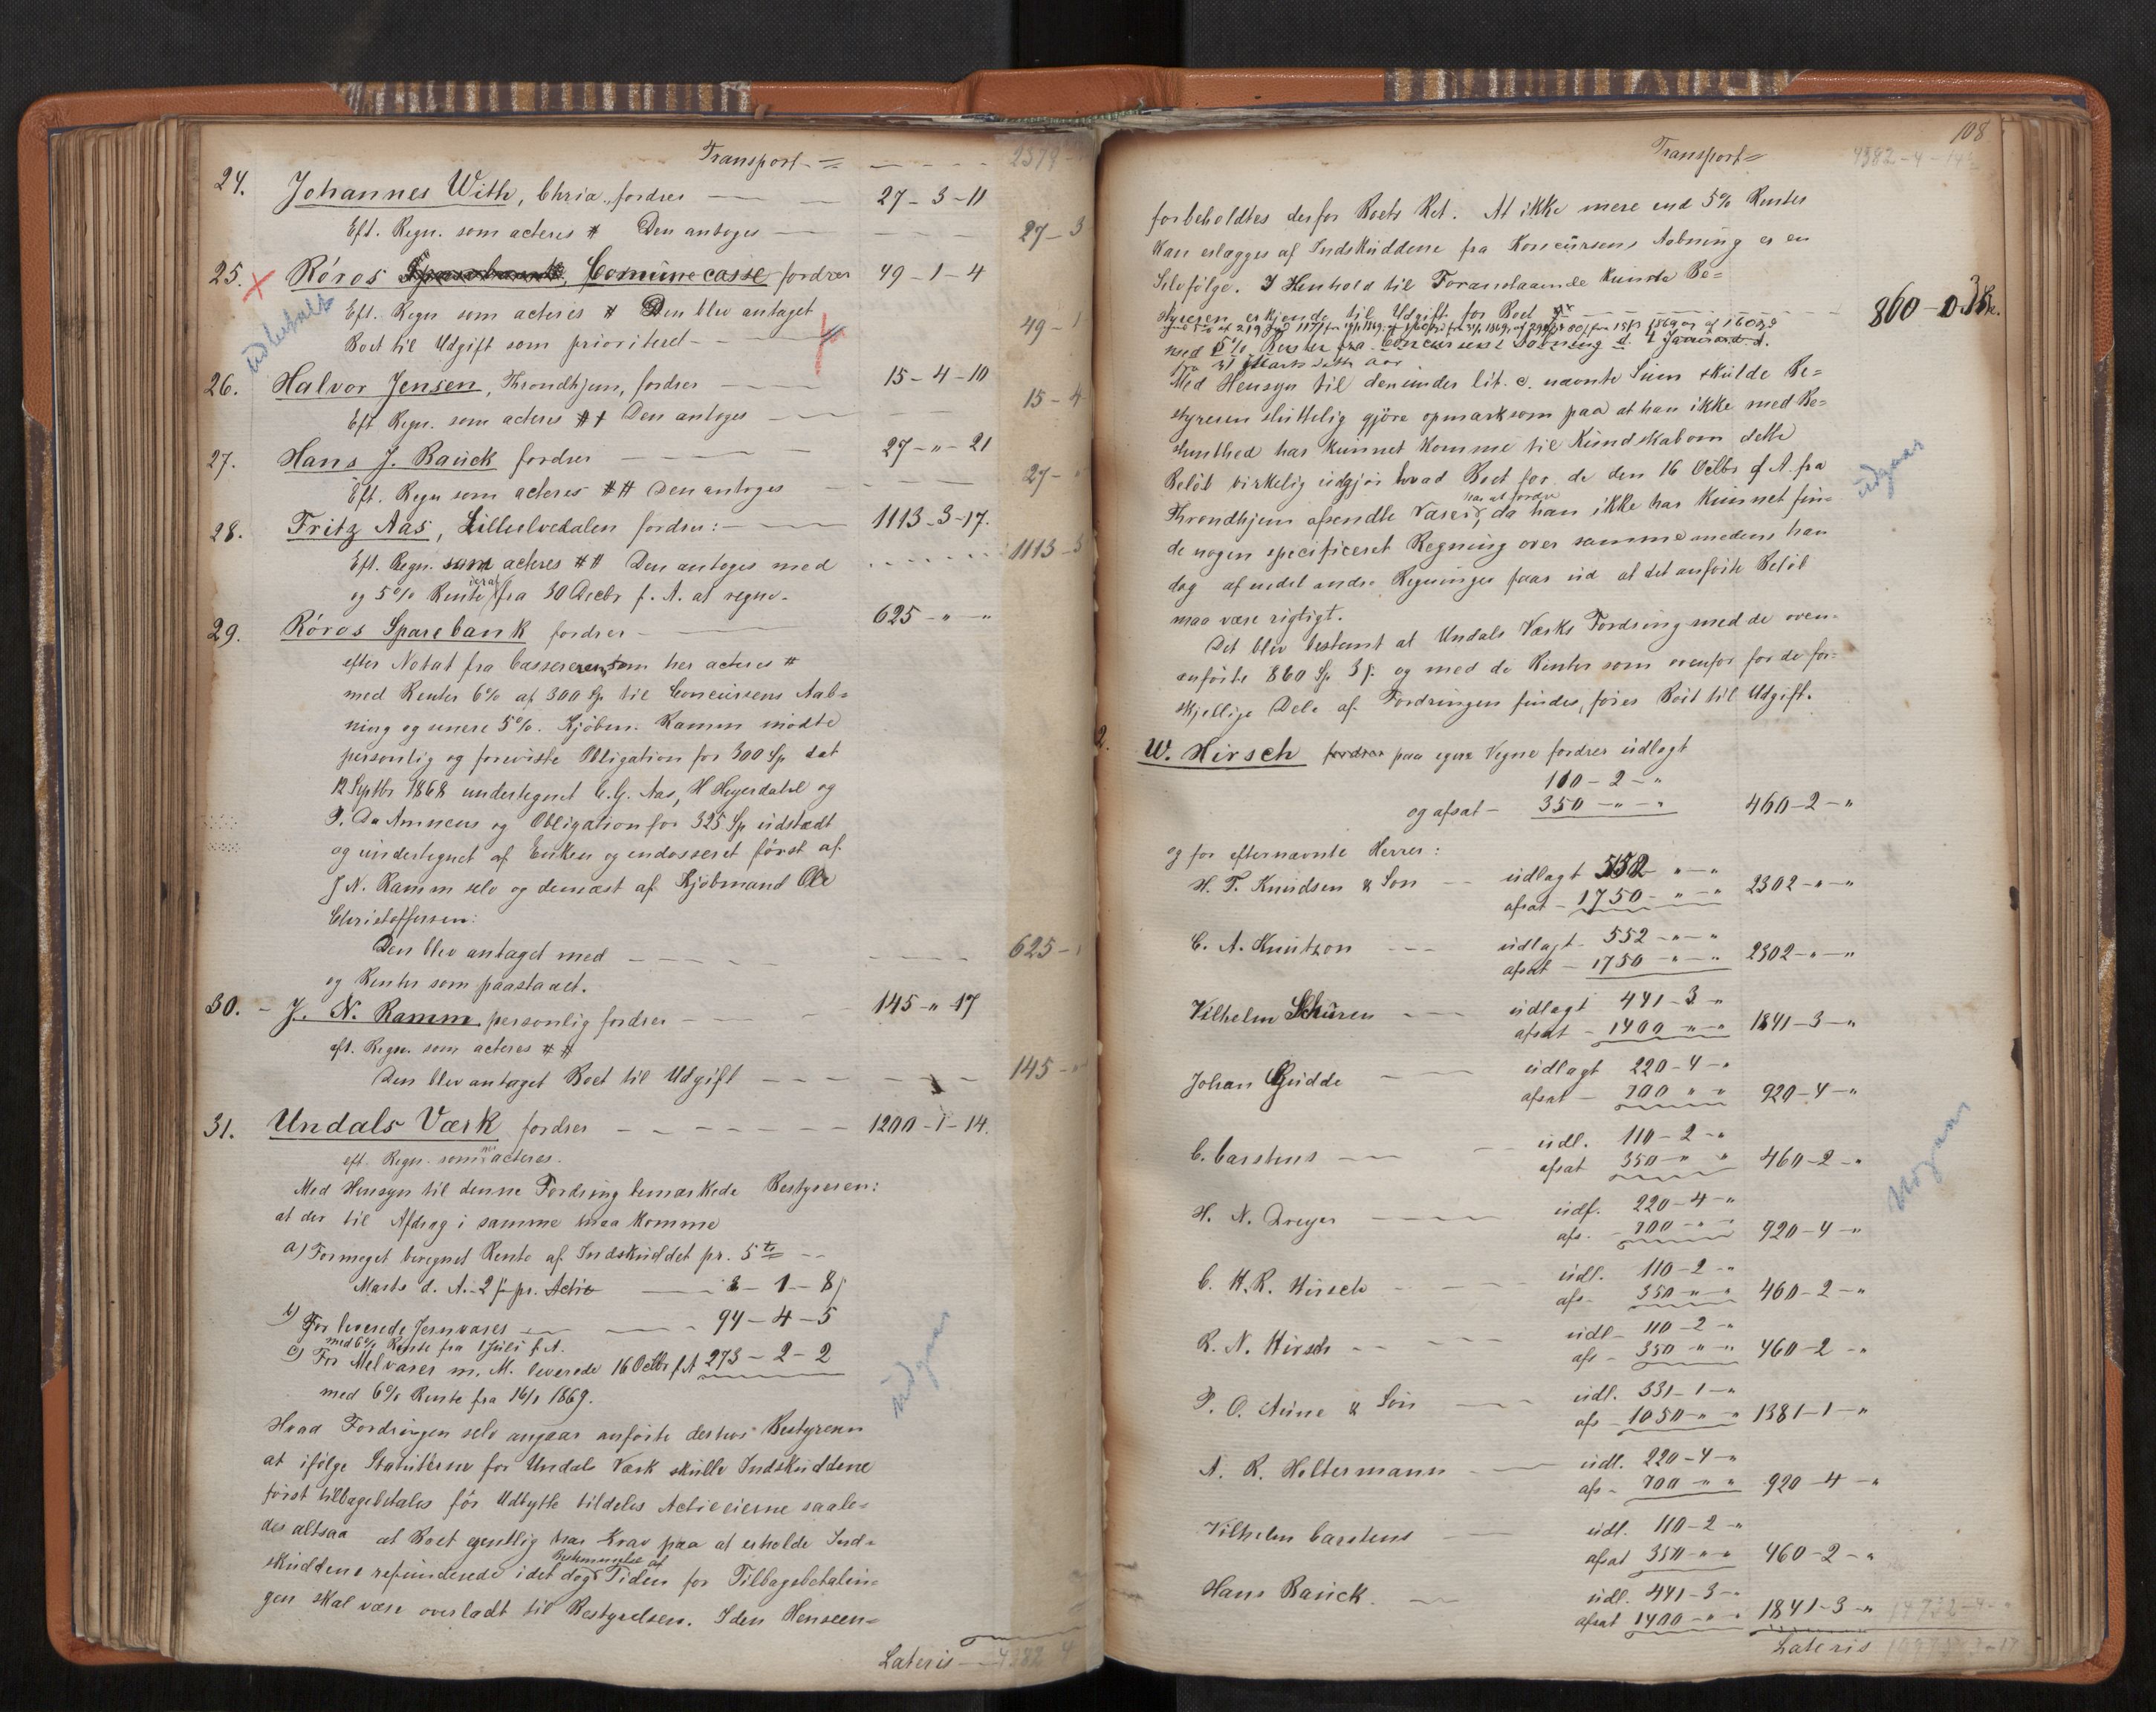 Transport
24. Johannes With, Chria., fordrer 27-3-11
Eft. Regn. som acteres # Den antoges 27-3
25. Røros Comunecasse fordrer 49-1-4
Eft. Regn som acteres # Den blev antaget
udbetalt
Boet til Udgift som prioriteret 49-1
26. Halvor Jensen, Throndhjem, fordrer 15-4-10
Eft Regn. som acteres ## Den antoges 15-4
27. Hans J. Bauck fordrer 27-"-21
Eft. Regn som acteres ## Den antoges 27-"
28. Fritz Aas, Lilleelvedalen fordrer: 1113-3-17.
Eft. Regn. som acteres ## Den antoges med 1113-3
og 5% Rente fra 30 Decbr f. A. at regne.
29. Røros Sparebank fordrer 625-"-"
efter Notat fra Cassereren som her acteres #
med Renter 6% af 300 Sp til Concursens Aab=
ning og senere 5%. Kjøbm. Ramm mødte
personlig og foreviste Obligation for 300 Sp dat
12 Septbr 1868 undertegnet E. G. Aas, H Heyerdahl og
P. Da Amneus og Obligation for 325 Sp udstædt
og undertegnet af Enken og endosseret først af
J N. Ramm selv og dernæst af Kjøbmand Ole
Christoffersen:
Den blev antaget med 625-"
og Renter som paastaaet.
30. J. N. Ramm personlig fordrer 145-"-17
eft. Regn. som acteres ##
Den blev antaget Boet til Udgift 145-"
31. Undals Værk fordrer 1200-1-14.
eft. Regn. som acteres.
Med Hensyn til denne Fordring bemærkede Bestyreren:
at der til Afdrag i samme maa komme
a) Formeget beregnet Rente af Indskuddet pr. 5te
Marts d. A. 2 ß pr. Actie 1-8
b) For leverede Jernvarer 94-4-5
med 6% Rente fra 1 Juli f. A.
c) For Melvarer m. M. leverede 16 Octbr f. A 273-2-2
med 6% Rente fra 16/1 1869.
udgaar
Hvad Fordringen selv angaar anførte derhos Bestyreren
at ifølge Statuterne for Undals Værk skulle Indskuddene
først tilbagebetales før Udbytte tildeles Actieeierne saale=
des altsaa at Boet egentlig har Krav paa at erholde Ind=
Bestemmelse af
skuddene refunderede idet dog Tiden for Tilbagebetalin=
gen skal være overladt til Bestyrelsen. I den Henseen=
Lateris 4382 4
108
Transport 4382-4-
forbeholdtes derfor Boets Ret. At ikke mere end 5% Renter
kan erlægges af Indskuddene fra Koncursens Aabning er en
Selvfølge. I Henhold til Foranstaaende kunde Be=
styreren erkjende til Udgift for Boet 860-0-3
med 5% Renter fra Concursens Aabning d. 4 Januar d.
fra 31 Marts dette Aar
Med Hensyn til den under lit. c. nævnte Sum skulde Be=
styreren sluttelig gjøre opmærksom paa at han ikke med Be=
stemthed har kunnet komme til Kundskab om dette
Beløb virkelig udgjør hvad Boet for de den 16 Octbr f. A. fra
har at fordre
Throndhjem afsendte Varer, da han ikke har kunnet fin=
de nogen specificeret Regning over samme medens han
dog af endel andre Regninger faar ud at det anførte Beløb
maa være rigtigt.
udgaar
Det blev bestemt at Undals Værks Fordring med de oven=
anførte 860 Sp 3 ß og med de Renter som ovenfor for de for=
skjellige Dele af Fordringen findes, føres Boet til Udgift.
2. W. Hirsch fordrer paa egne Vegne fordrer udlagt
110-2-"
og afsat 350-"-" 460-2-"
og for efternævnte Herrer:
H. F. Knudsen & Søn udlagt 552-"-"
afsat 1750-"-" 2302-"-"
C. A. Knutzon udlagt 552-"-"
afsat 1750-"-" 2302-"-"
Vilhelm Schuren udlagt 441-3-"
afsat 1400-"-" 1841-3-"
Johan Gudde udlagt 220-4-"
afsat 700-"-" 920-4-"
C. Carstens udl. 110-2-"
afsat 350-"-" 460-2-"
H. N. Dreyer udl. 220-4-"
afs. 700-"-" 920-4-"
udgaar
C. H. R. Hirsch udl. 110-2-"
afs. 350-"-" 460-2-"
R. N. Hirsch udl. 110-2-"
afs 350-"-" 460-2-"
P. O. Aune & Søn udl. 331-1-"
afs 1050-"-" 1381-1-"
A. R. Holtermann udl. 220-4-"
afs 700-"-" 920-4-"
Vilhelm Carstens udl. 110-2-"
afsat 350-"-" 460-2-"
Hans Bauck. udl. 441-3-"
afsat 1400-"-" 1841-3-"
Lateris